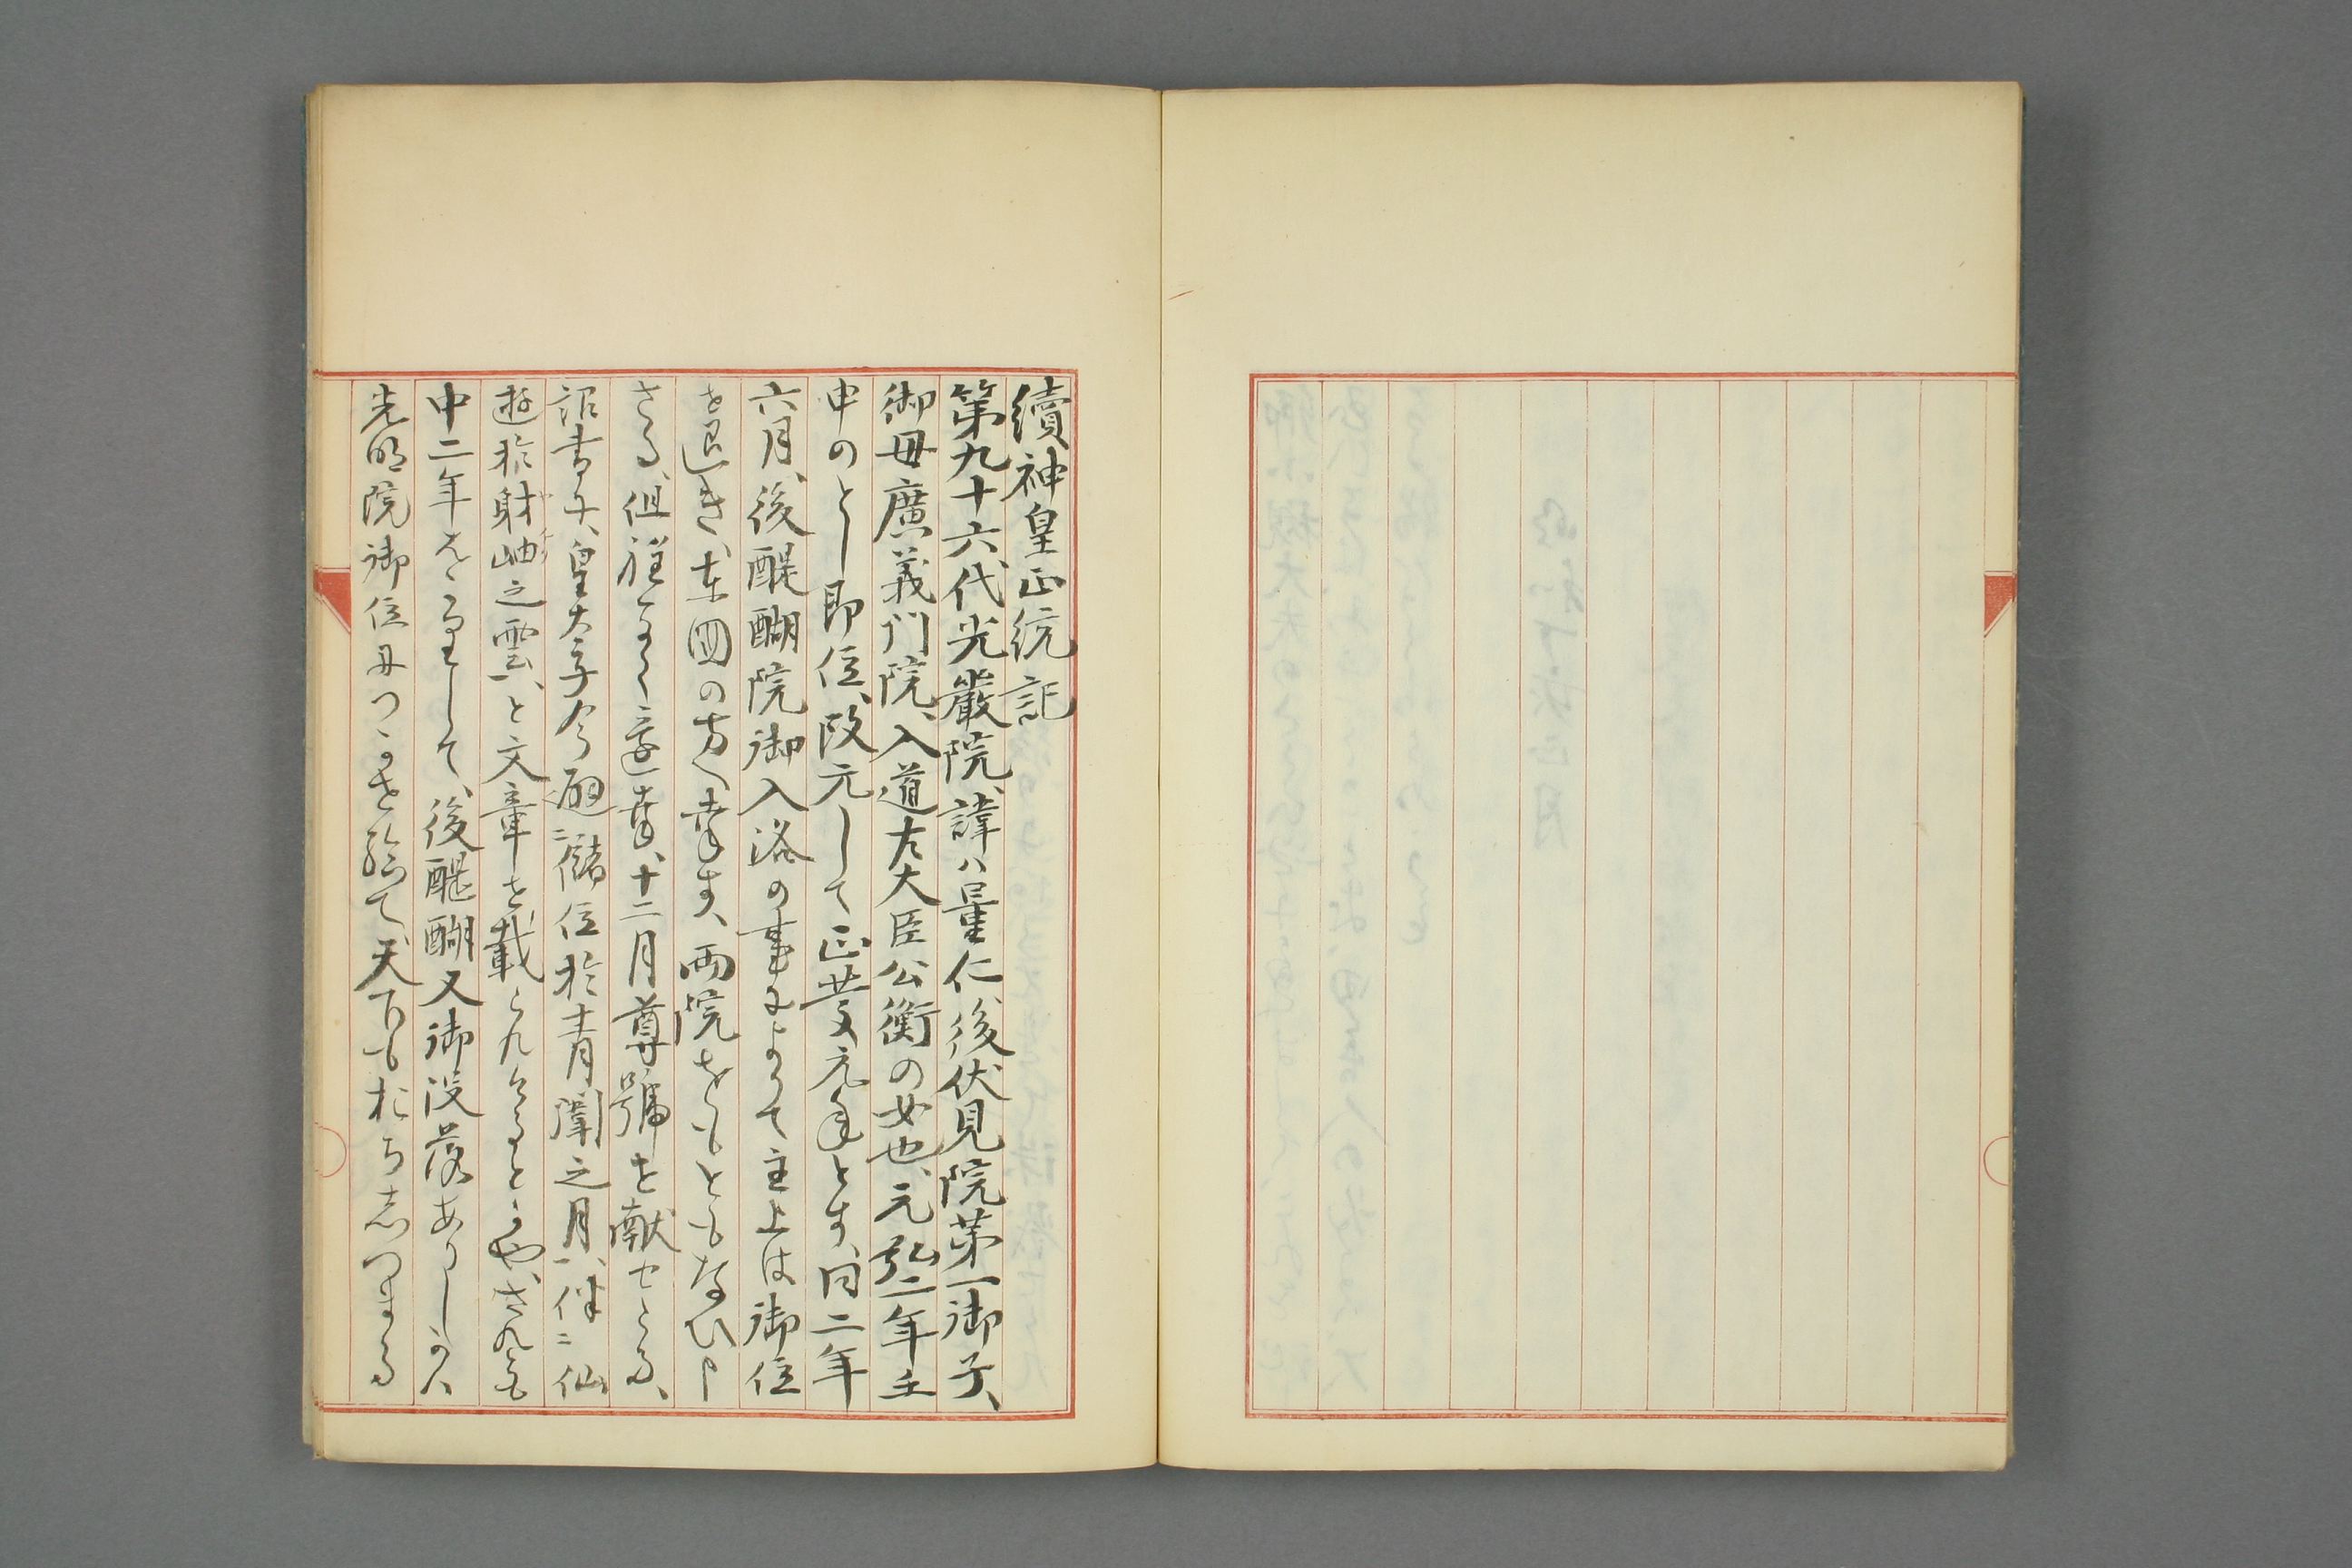 續神皇正統記
第九十六代光嚴院、諱ハ量仁、後伏見院第一御子、
御母廣義門院、入道左大臣公衡の女也、元弘二年壬
申のとし即位、改元して正慶元年とす、同二年
六月、後醍醐院御入洛の事によりて主上は御位
を退き、東国の方へ幸す、両院をもともなひ申
さる、但程なく還幸、十二月尊號を献せらる、
詔書云、皇太子今廻儲位於青闈之月、伴ニ仙
遊於射岫之雲、と文章を載られけるとかや、されとも
中二年をへたてして、後醍醐又御没落ありしかハ
光明院御位につかせ給て、天下もおちしつまる